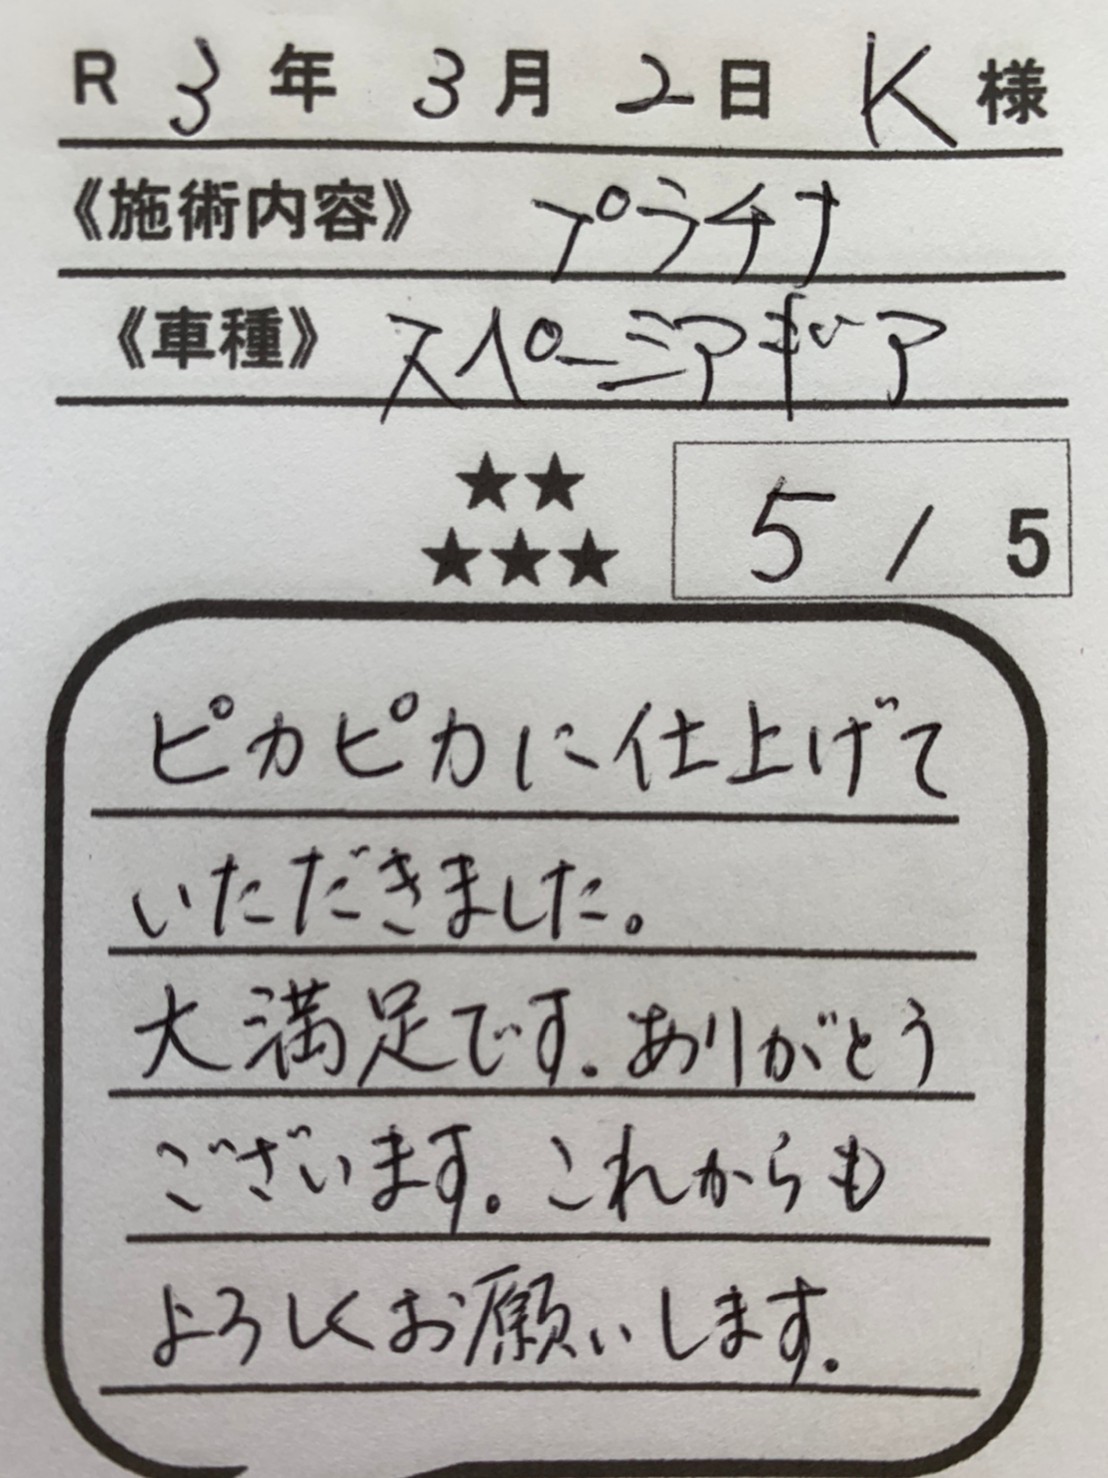 R 3年 3月 2日 K 様
《施術内容》 プラチナ
《車種》 スペーシアギア
★★
★★★ 5 / 5
ピカピカに仕上げて
いただきました。
大満足です。ありがとう
ございます。これからも
よろしくお願いします。